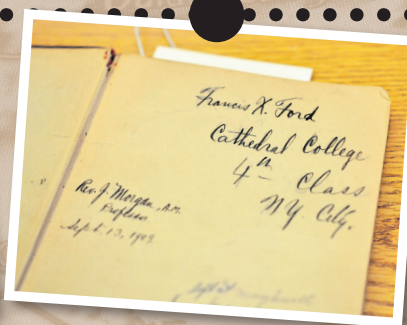 Francis X. Ford
Cathedral College
4th Class
NY. City.
Rev. J. Morgan, A.M.
Professor
Sept. 13, 1909